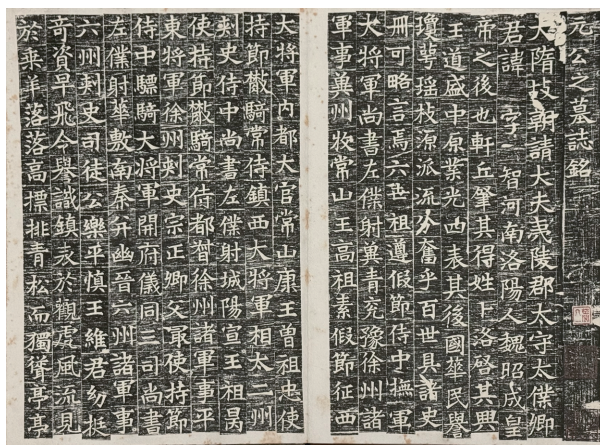 元公之墓誌銘
大隋故朝請大夫夷陵郡太守太僕卿
君諱 字 智河南洛陽人魏昭成皇
帝之後也軒丘肇其得姓卜洛啓其興
王道盛中原業光四表其後國華民譽
瓊萼瑤枝源派流分奮乎百世具諸史
冊可略言焉六世祖遵假節侍中撫軍
大將軍尚書左僕射冀青兗豫徐州諸
軍事冀州牧常山王高祖素假節征西
大將軍內都大官常山康王曾祖忠使
持節散騎常侍鎮西大將軍相太二州
刺史侍中尚書左僕射城陽宣王祖昺
使持節散騎常侍都督徐州諸軍事平
東將軍徐州刺史宗正卿父最使持節
侍中驃騎大將軍開府儀同三司尚書
左僕射華敷南秦并幽晉六州諸軍事
六州刺史司徒公樂平慎王維君幼挺
奇資早飛令譽識鎮表於觀虎風流見
於乘羊落落高標排青松而獨聳亭亭